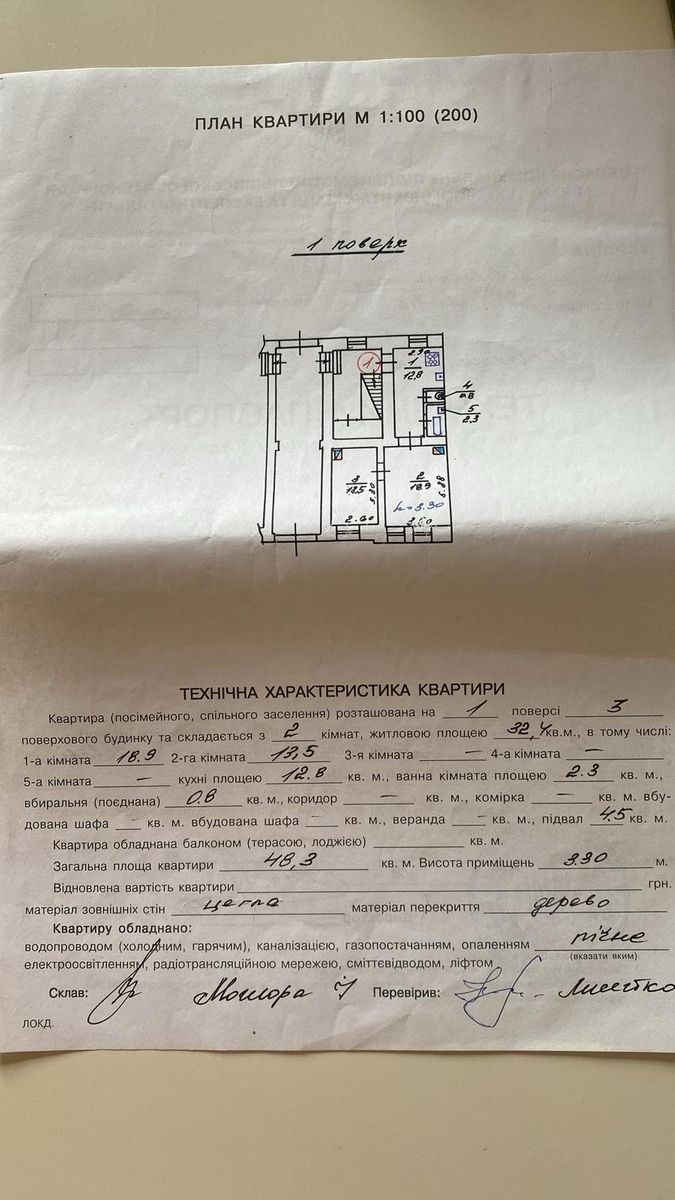 ПЛАН КВАРТИРИ М 1:100 (200)
1 поверх
1
2.90
1
12,8
4
0.8
5
2.3
3
13,5
2
18.9
h=3.30
2.60
ТЕХНІЧНА ХАРАКТЕРИСТИКА КВАРТИРИ
Квартира (посімейного, спільного заселення) розташована на 1 поверсі 3
поверхового будинку та складається з 2 кімнат, житловою площею 32,4 кв.м., в тому числі:
1-а кімната 18.9 2-га кімната 13,5 3-я кімната — 4-а кімната —
5-а кімната — кухні площею 12.8 кв. м., ванна кімната площею 2.3 кв. м.,
вбиральня (поєднана) 0.8 кв. м., коридор — кв. м., комірка — кв. м. вбу-
дована шафа — кв. м. вбудована шафа — кв. м., веранда — кв. м., підвал 4.5 кв. м.
Квартира обладнана балконом (терасою, лоджією) кв. м.
Загальна площа квартири 48,3 кв. м. Висота приміщень 3.30 м.
Відновлена вартість квартири грн.
матеріал зовнішніх стін цегла матеріал перекриття дерево
Квартиру обладнано:
водопроводом (холодним, гарячим), каналізацією, газопостачанням, опаленням пічне
(вказати яким)
електроосвітленням, радіотрансляційною мережею, сміттєвідводом, ліфтом
Склав: Перевірив:
ЛОКД.